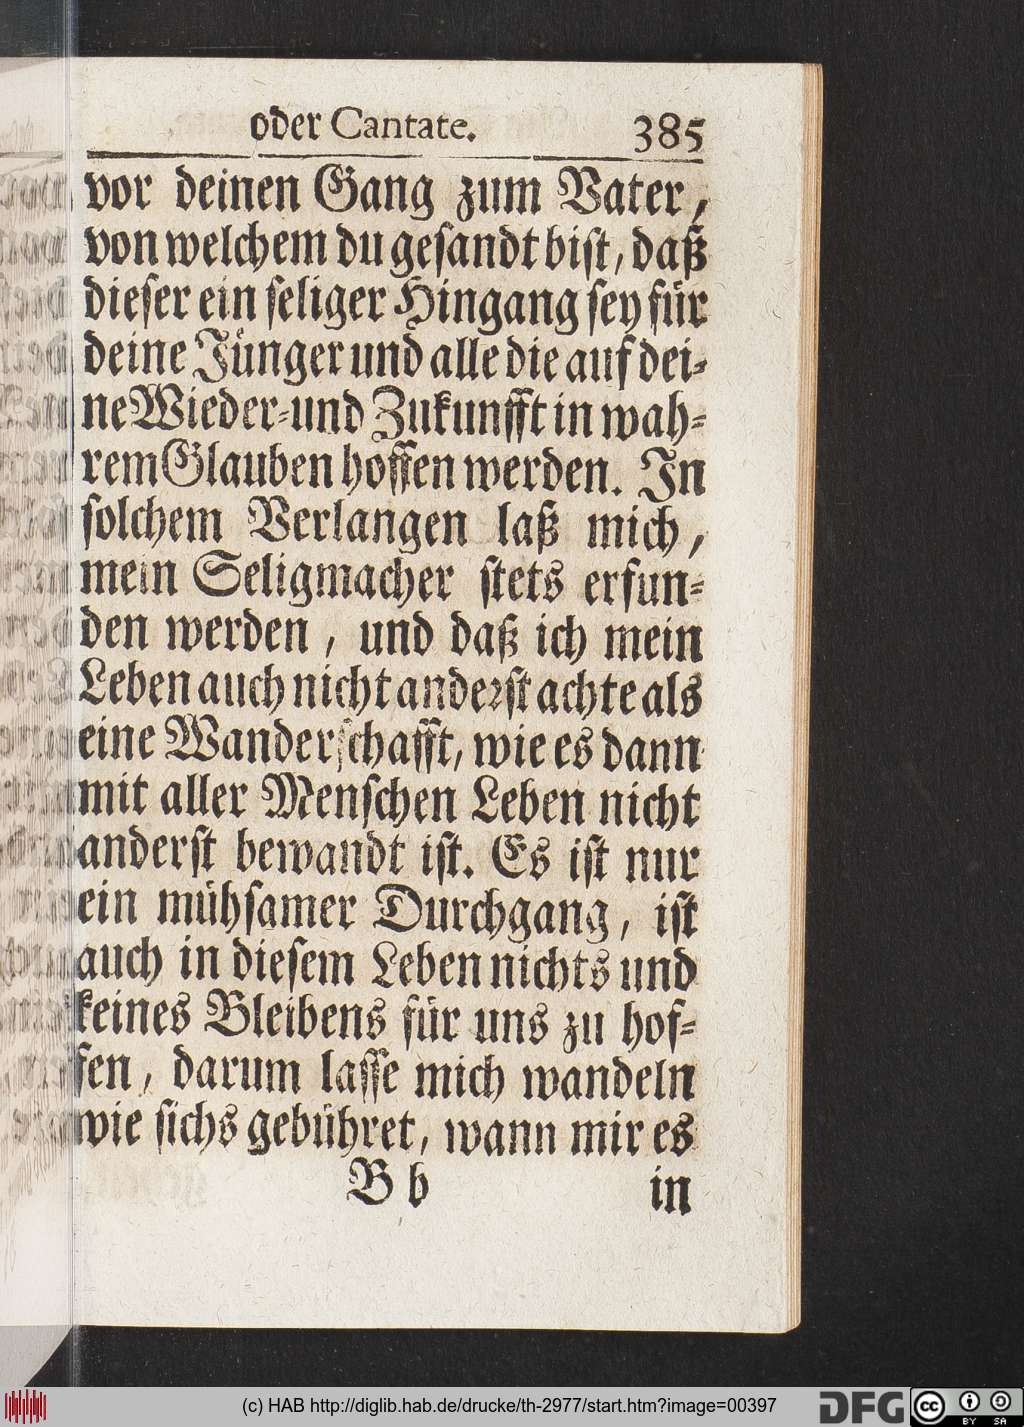 oder Cantate. 385
vor deinen Gang zum Vater,
von welchem du gesandt bist, daß
dieser ein seliger Hingang sey für
deine Jünger und alle die auf dei-
ne Wieder-und Zukunfft in wah-
rem Glauben hoffen werden. In
solchem Verlangen laß mich,
mein Seligmacher stets erfun-
den werden, und daß ich mein
Leben auch nicht anderst achte als
eine Wanderschafft, wie es dann
mit aller Menschen Leben nicht
anderst bewandt ist. Es ist nur
ein mühsamer Durchgang, ist
auch in diesem Leben nichts und
keines Bleibens für uns zu hof-
fen, darum lasse mich wandeln
wie sichs gebühret, wann mir es
B b in
(c) HAB http://diglib.hab.de/drucke/th-2977/start.htm?image=00397
DFG
cc BY SA